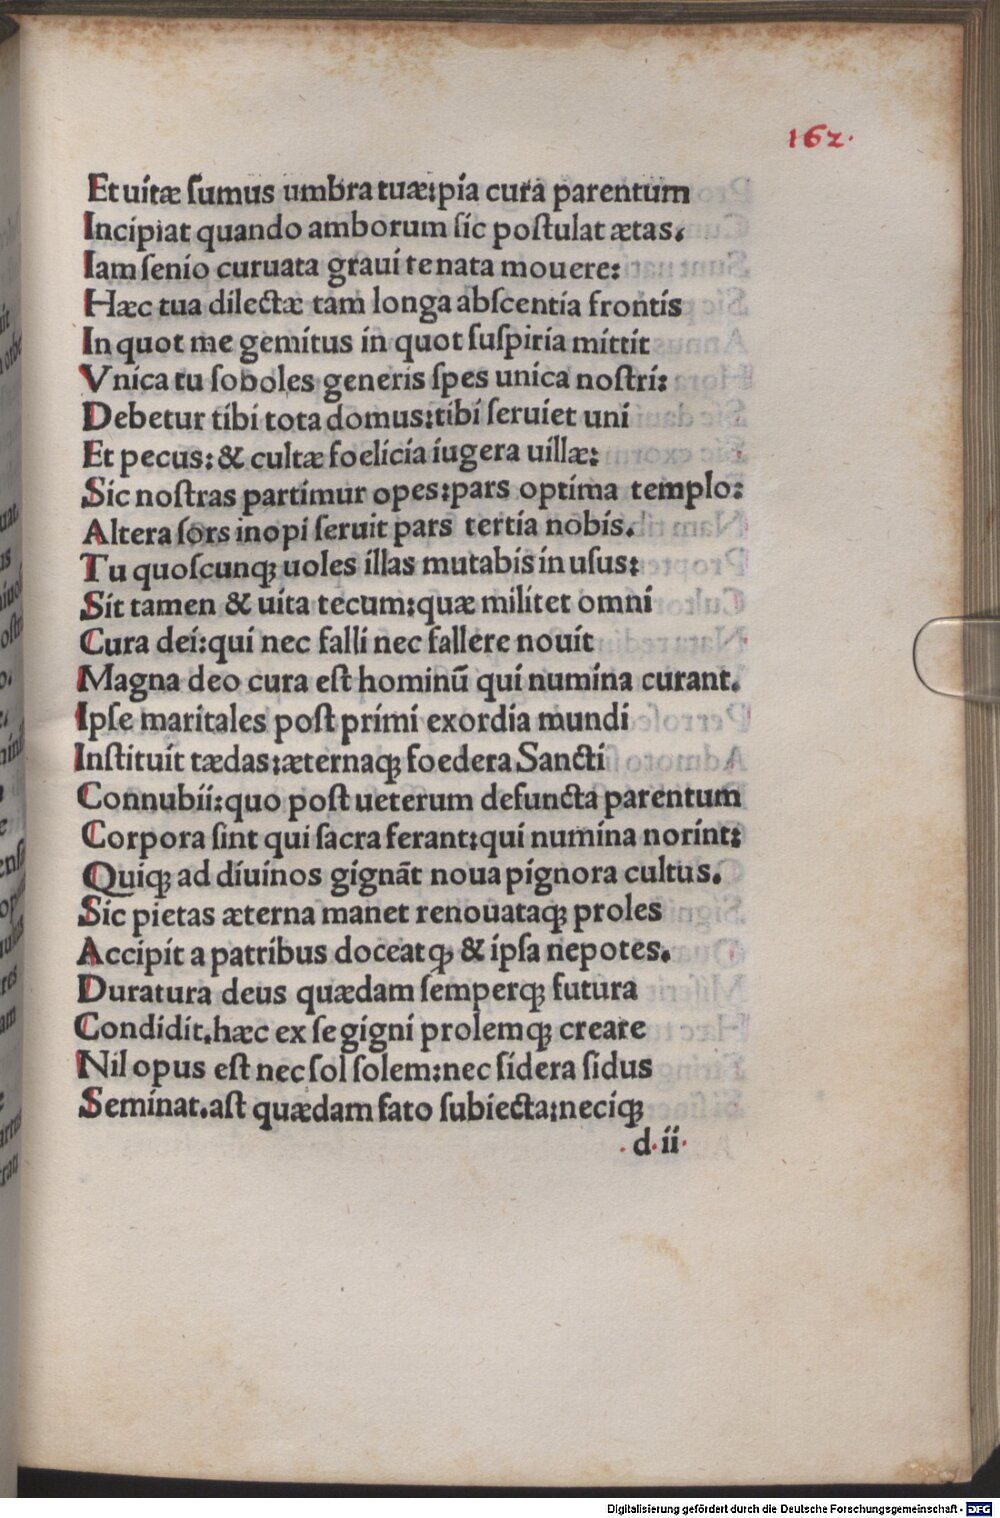 162.
Et uitæ ſumus umbra tuæ:pia cura parentum
Incipiat quando amborum ſic poſtulat ætas.
Iam ſenio curuata graui te nata mouere:
Hæc tua dilectæ tam longa abſcentia frontis
In quot me gemitus in quot ſuſpiria mittit
Vnica tu ſoboles generis ſpes unica noſtri:
Debetur tibi tota domus:tibi ſeruiet uni
Et pecus:& cultæ foelicia iugera uillæ:
Sic noſtras partimur opes:pars optima templo:
Altera ſors inopi ſeruit pars tertia nobis.
Tu quoſcunqꝫ uoles illas mutabis in uſus:
Sit tamen & uita tecum:quæ militet omni
Cura dei:qui nec falli nec fallere nouit
Magna deo cura eſt hominū qui numina curant.
Ipſe maritales poſt primi exordia mundi
Inſtituit tædas:æternaqꝫ foedera Sancti
Connubii:quo poſt ueterum defuncta parentum
Corpora ſint qui ſacra ferant:qui numina norint:
Quiqꝫ ad diuinos gignāt noua pignora cultus.
Sic pietas æterna manet renouataqꝫ proles
Accipit a patribus doceatqꝫ & ipſa nepotes.
Duratura deus quædam ſemperqꝫ futura
Condidit.hæc ex ſe gigni prolemqꝫ creare
Nil opus eſt nec ſol ſolem:nec ſidera ſidus
Seminat.aſt quædam fato ſubiecta:neciqꝫ
.d.ii.
Digitalisierung gefördert durch die Deutsche Forschungsgemeinschaft - DFG